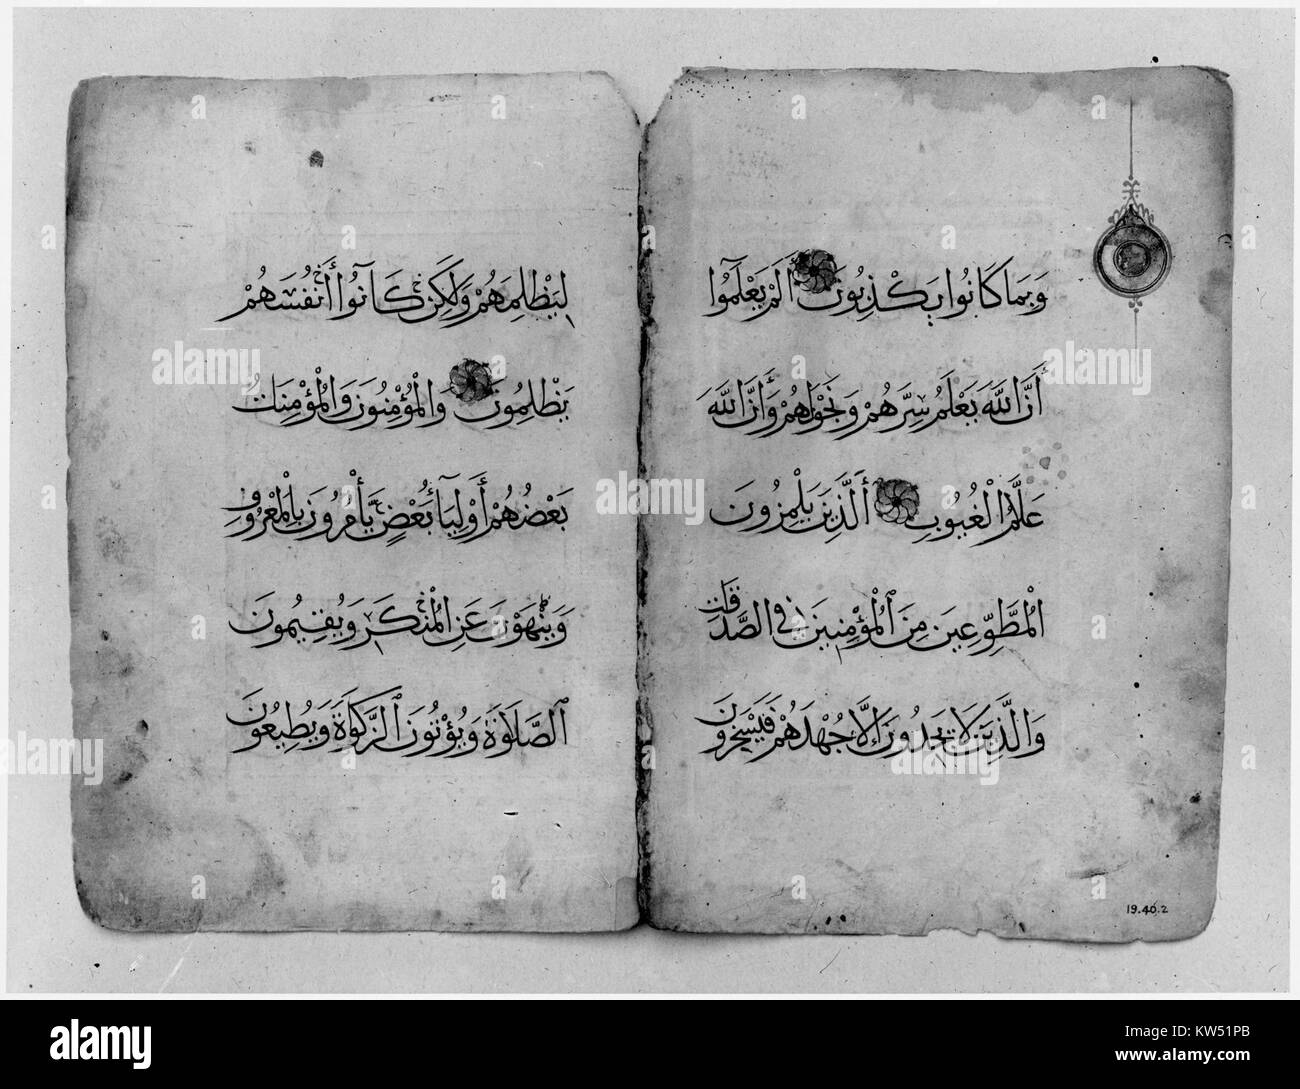 وَبِمَا كَانُوا يَكْذِبُونَ أَلَمْ يَعْلَمُوا
أَنَّ اللَّهَ يَعْلَمُ سِرَّهُمْ وَنَجْوَاهُمْ وَأَنَّ اللَّهَ
عَلَّامُ الْغُيُوبِ أَلَّذِينَ يَلْمِزُونَ
الْمُطَّوِّعِينَ مِنَ الْمُؤْمِنِينَ فِي الصَّدَقَاتِ
وَالَّذِينَ لَا يَجِدُونَ إِلَّا جُهْدَهُمْ فَيَسْخَرُونَ
19.40.2
لِيَظْلِمَهُمْ وَلَكِنْ كَانُوا أَنْفُسَهُمْ
يَظْلِمُونَ وَالْمُؤْمِنُونَ وَالْمُؤْمِنَاتُ
بَعْضُهُمْ أَوْلِيَآءُ بَعْضٍ يَأْمُرُونَ بِالْمَعْرُوفِ
وَيَنْهَوْنَ عَنِ الْمُنْكَرِ وَيُقِيمُونَ
الصَّلَاوةَ وَيُؤْتُونَ الزَّكَاوةَ وَيُطِيعُونَ
a alamy stock photo
alamy
Image ID: KW51PB
www.alamy.com